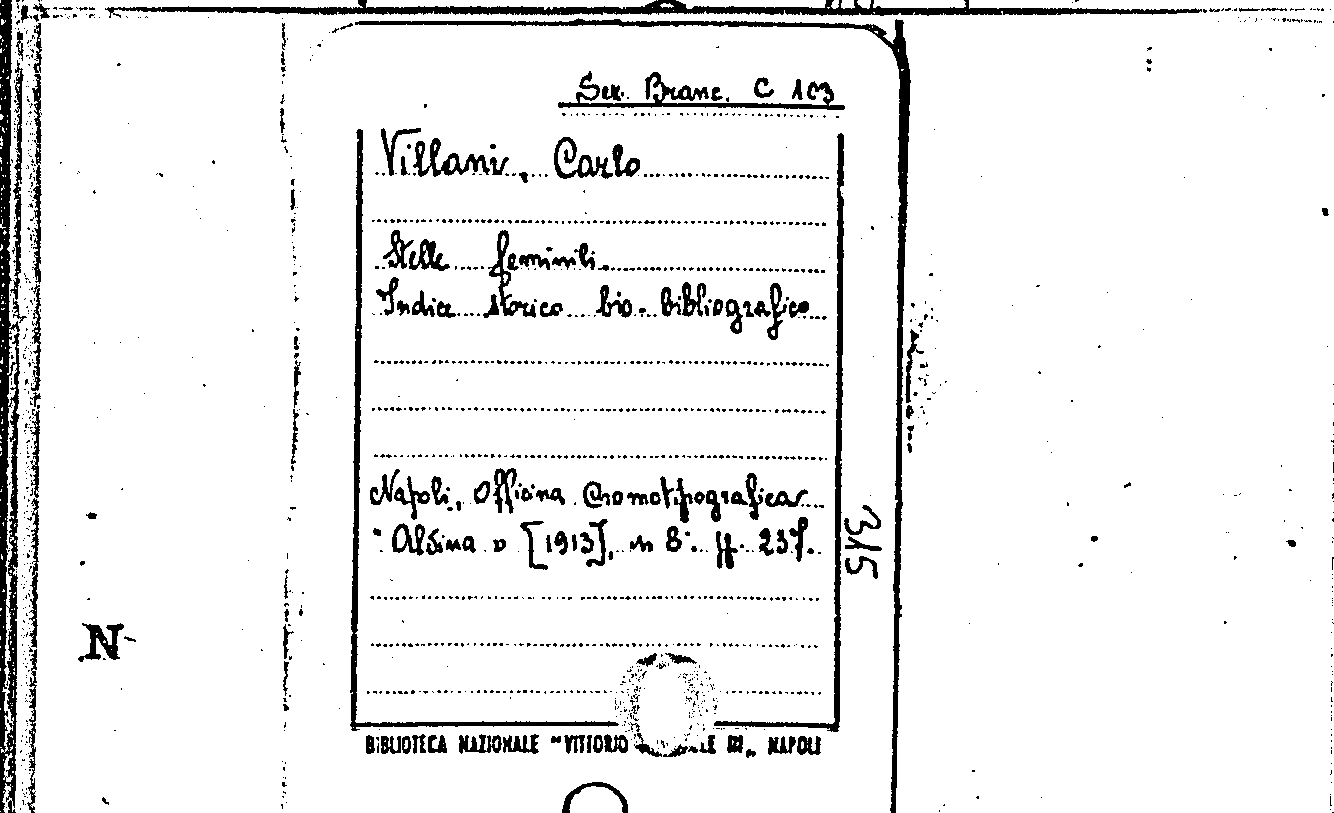 Sez. Branc. C 103
Villani, Carlo
Stelle feminili.
Indice storico bio-bibliografico
Napoli, Officina Cromotipografica
"Aldina" [1913], in 8°. pp. 237.
315
N
BIBLIOTECA NAZIONALE "VITTORIO III„ NAPOLI